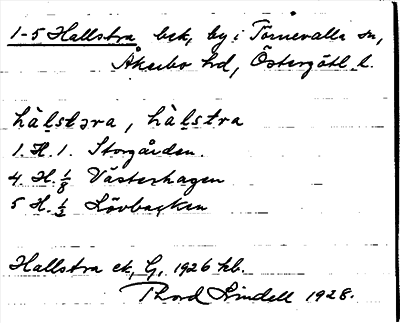 1-5 Hallstra bek, by i Törnevalla sn,
Åkerbo hd, Östergötl. l.
hàl̤st̤ɔra, hàl̤st̤ra
1. H. 1. Storgården.
4. H. 1/8 Västerhagen
5 H. 1/2 Lövbacken
Hallstra ek, G, 1926 kb.
Thord Lindell 1928.